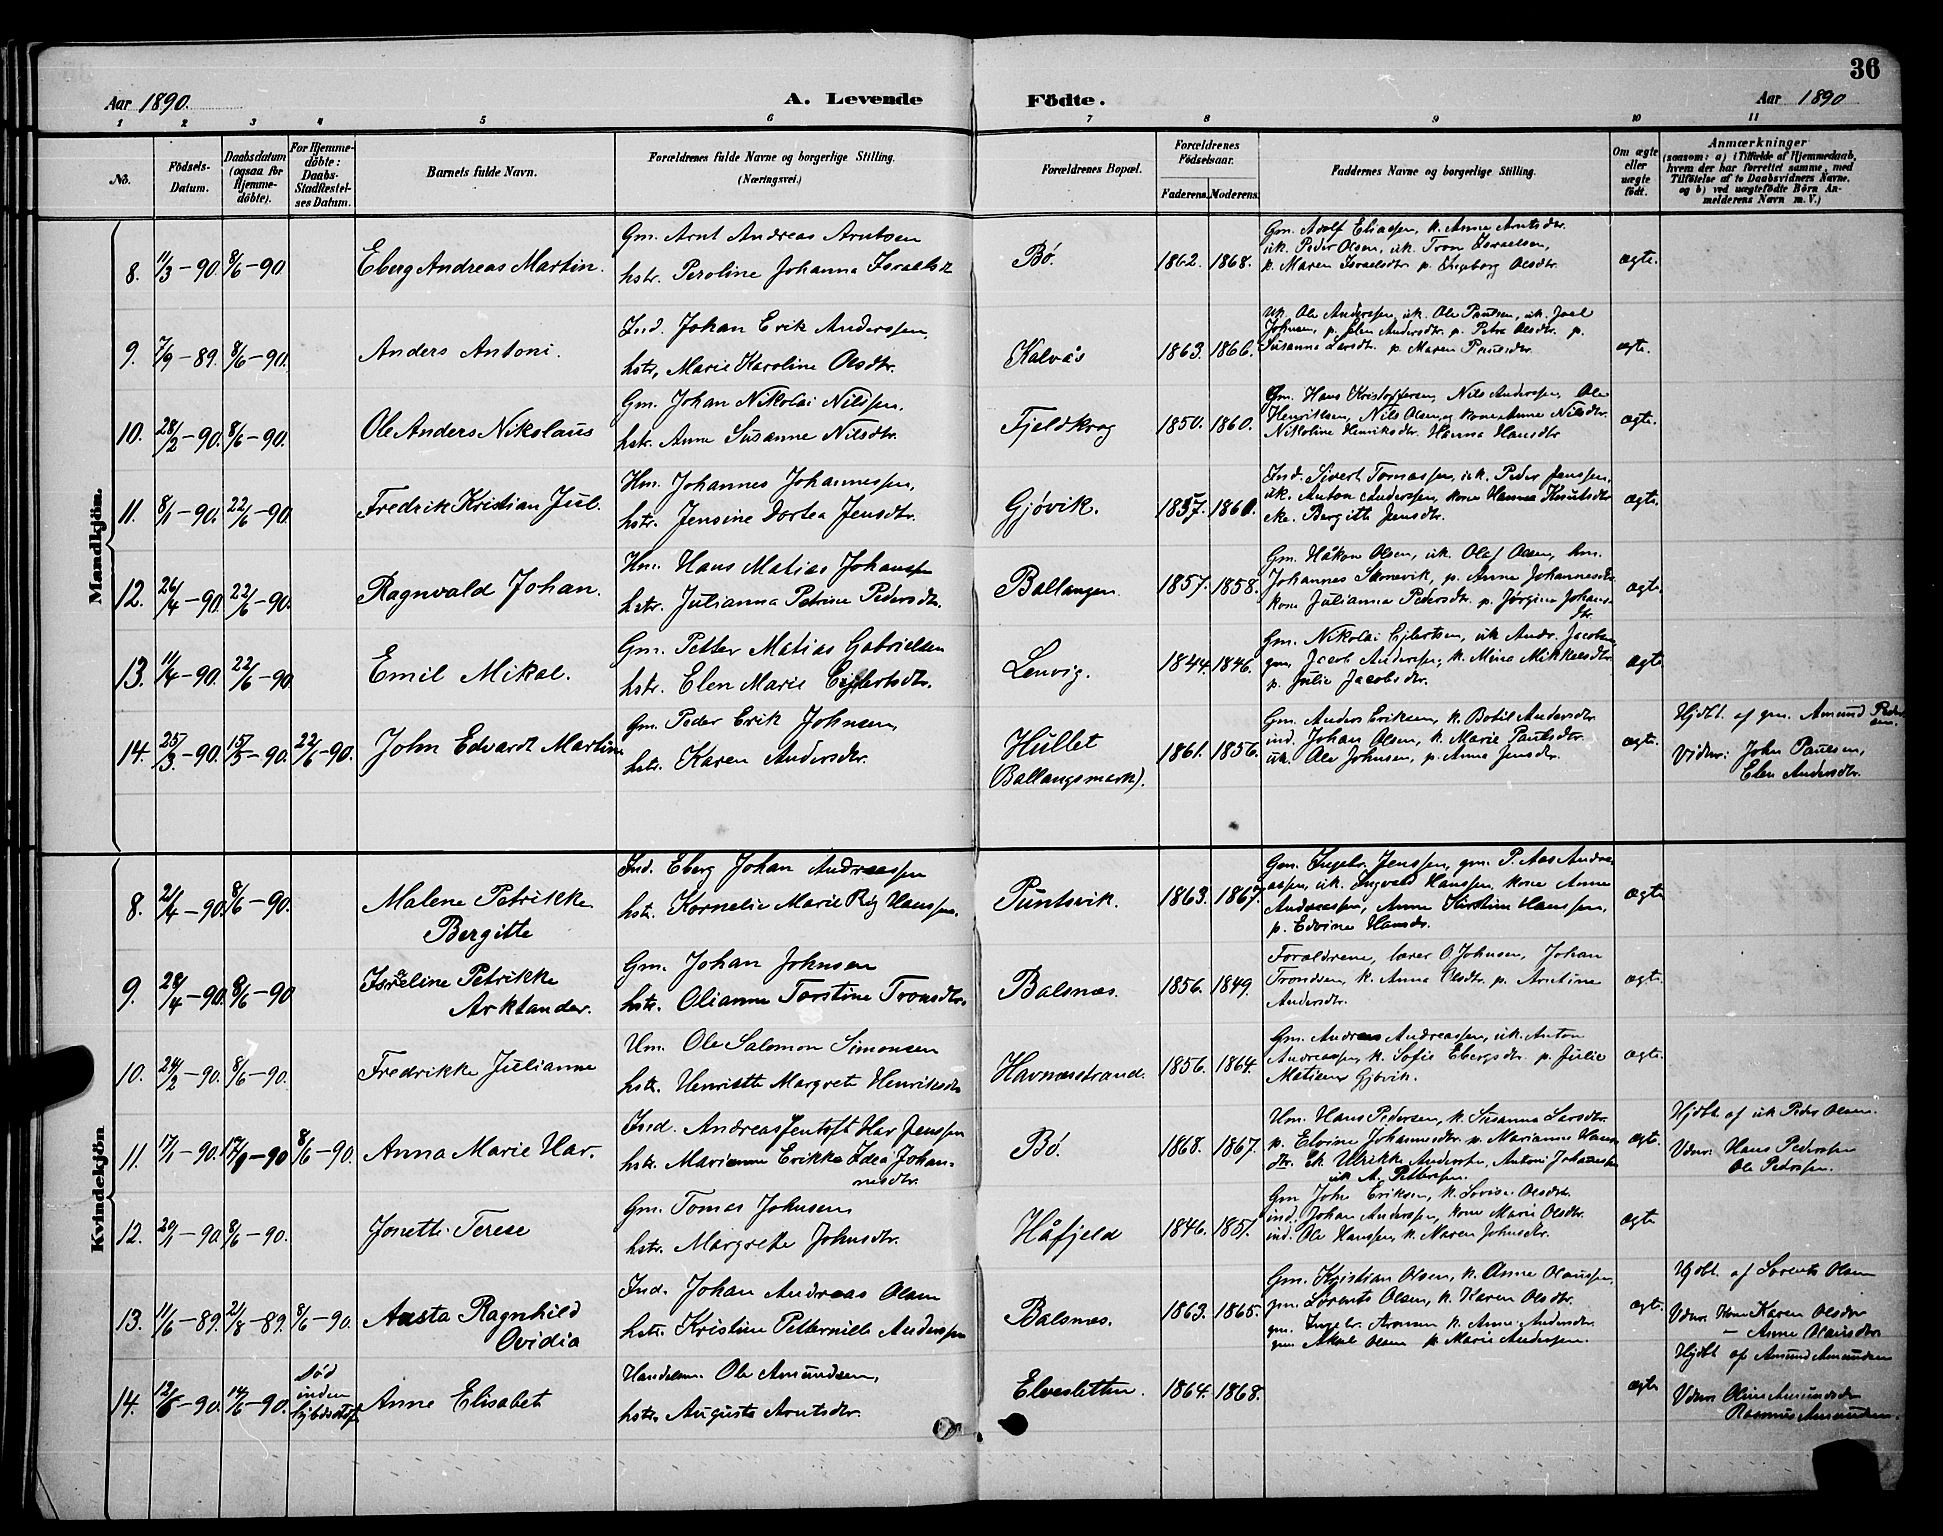 36
Aar 1890.
A. Levende Födte.
Aar 1890
1 2 3 4 5 6 7 8 9 10 11
No.
Födsels-Datum.
Daabsdatum (ogsaa for Hjemme-döbte).
For Hjemme-döbte: Daabs-Stadfæstel-ses Datum.
Barnets fulde Navn.
Forældrenes fulde Navne og borgerlige Stilling. (Næringsvei.)
Forældrenes Bopæl.
Forældrenes Födselsaar.
Faderens. Moderens.
Faddernes Navne og borgerlige Stilling.
Om ægte eller uægte födt.
Anmærkninger (saasom: a) i Tilfælde af Hjemmedaab, hvem der har forrettet samme, med Tilföielse af to Daabsvidners Navne, og b) ved uægtefödte Börn Anmelderens Navn m. V.)
Mandkjön.
8. 11/3-90. 8/6-90 Eberg Andreas Martin.
Gm. Arnt Andreas Arntsen
hstr. Peroline Johanna Israelsd
Bø. 1862. 1868.
Gm. Adolf Eliassen, k. Anne Arntsdtr.
uk. Peder Olsen, uk. Tron Israelsen,
p. Maren Israelsdtr. p. Ingeborg Olsdtr.
ægte.
9. 7/9-89. 8/6-90. Anders Antoni.
Ind. Johan Erik Anderssen,
hstr, Marie Karoline Olsdtr.
Kalvås 1863. 1866.
Uk. Ole Anderssen, uk. Ole Paulsen, uk. Joel
Johnsen, p. Elen Andersdtr. p. Petra Olsdtr. p.
Susanna Larsdtr. p. Maren Paulsdtr.
ægte.
10. 28/2-90. 8/6-90. Ole Anders Nikolaus
Gm. Johan Nikolai Nilssen.
hstr. Anne Susanne Nilsdtr.
Fjeldkrog 1850. 1860.
Gm. Hans Kristoffersen, Nils Anderssen, Ole
Henriksen, Nils Olsen og kone Anne Nilsdtr.
Nikoline Henriksdtr. Hanna Hansdtr
ægte.
11. 8/1-90. 22/6-90. Fredrik Kristian Jul.
Hm. Johannes Johannessen,
hstr. Jensine Dortea Jensdtr.
Gjøvik. 1857. 1860.
Ind. Sivert Tomassen, uk. Peder Jenssen,
uk. Anton Anderssen, kone Hanna Knutsdtr
Bergitte Jensdtr.
ægte.
12. 26/4-90. 22/6-90. Ragnvald Johan.
Hm. Hans Matias Johanssen
hstr. Julianna Petrine Pedersdtr.
Ballangen 1857. 1858.
Gm. Håkon Olsen, uk. Olaf Olsen, hm.
Johannes Skonevik, p. Anne Johannesdtr
kone Julianna Pedersdtr. p. Jørgine Johans-
dtr.
ægte.
13. 11/4-90. 22/6-90. Emil Mikal.
Gm. Petter Matias Gabrielsen
hstr. Elen Marie Ejlertsdtr.
Lenvig. 1844. 1846.
Gm. Nikolai Ejlertsen, uk Andr. Jacobsen
gm, Jacob Anderssen, k. Mina Mikkelsdtr.
p. Julie Jacobsdtr.
ægte
14. 25/3-90. 15/5-90. 22/6-90. John Edvardt Martin
Gm. Peder Erik Johnsen,
hstr. Karen Andersdtr.
Hullet
Ballangsmark). 1861. 1856.
Gm. Anders Eriksen, k. Botil Andersdtr.
ind. Johan Olsen, k. Marie Paulsdtr.
uk. Ole Johnsen, p. Anna Jensdtr.
ægte.
Hjdbt. af gm. Amund Peder
sen.
Vidner: John Paulsen,
Elen Andersdtr.
Kvindekjön
8. 21/4-90. 8/6-90. Malene Petrikke
Bergitte
Ind. Eberg Johan Andreassen
hstr. Kornelia Marie Reg Hanssen.
Puntsvik. 1863. 1867.
Gm. Ingebr. Jenssen, gm. P. Aas Andre-
assen, uk. Ingvald Hanssen, kone Anne
Andreassen, Anne Kirstine Hanssen,
p. Edvine Hansdr.
ægte
9. 28/4-90. 8/6-90 Isreline Petrikke
Arktander.
Gm. Johan Johnsen
hstr. Olianna Torstine Tronsdtr.
Balsnæs. 1856. 1849.
Forældrene, lærer O Johnsen, Johan
Trondsen, k. Anna Olsdtr. p. Arntine
Andersdtr.
ægte.
10. 24/2-90. 8/6-90. Fredrikke Julianne
Um. Ole Salomon Simonsen
hstr. Henriette Margrete Henriksdtr
Havnæsstrand. 1856. 1864.
Gm. Andreas Andreassen, uk. Anton
Andreassen, k. Sofie Ebergsdr. p. Julie
Gjövik.
ægte.
11. 17/1-90. 17/1-90 8/6-90. Anna Marie Har.
Ind. Andreas Jentoft Har Jenssen
hstr. Marianne Erikke Idea Johan-
nesdtr.
Bø. 1868. 1867.
Um. Hans Pedersen, k. Susanna Larsdtr.
p. Elvine Johannesdtr. p. Marianne Hans
dtr. Ulrikke Anderssen, Antoni Johannessen
uk A. Petersen.
ægte.
Hjdbt. af uk Peder Olsen.
Vdner: Hans Pederssen
Ole Pederssen.
12. 20/1-90. 8/6-90. Jonette Terese
Gm. Tomas Johnsen
hstr. Margrete Johnsdtr.
Håfjeld 1846. 1851.
Gm John Eriksen, k. Lovise Olsdtr.
ind. Johan Anderssen, kone Marie Olsdtr.
ind. Ole Hanssen, k. Maren Johnsdtr.
ægte
13. 11/6-89. 2/8-89. 8/6-90. Aasta Ragnhild
Ovidia
Ind. Johan Andreas Olsen
hstr. Kristine Petternille Anderssen
Balsnæs. 1863. 1865.
Gm. Kristian Olsen, k. Anne Olaussen,
gm. Lorents Olsen, k. Karen Olsdtr.
gm. Ingebr. Aronsen k. Anne Andersdtr.
gm Aksel Olsen p. Marie Andersen.
ægte.
Hjdbt. af Lorents Olsen
Vdner: kone Karen Olsdtr
— Anne Olausdtr
14. 12/6-90. 14/6-90. Död
inden
Anne Elisabet
Handelsm. Ole Amundsen,
hstr. Augusta Arntsdtr.
Elvesletten. 1864. 1868.
ægte
Hjdbt af Amund Amundsen
Vdner: Oline Amundsdtr
Rasmus Amundsen.